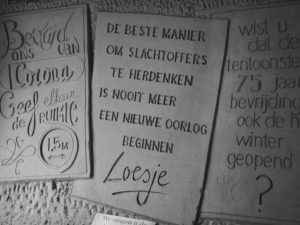 Bevrijd
ons van
Corona
Geef elkaar
de RUIMTE
1,5M
DE BESTE MANIER
OM SLACHTOFFERS
TE HERDENKEN
IS NOOIT MEER
EEN NIEUWE OORLOG
BEGINNEN
Loesje
wist u
dat de
tentoonste
75 jaar
bevrijding
ook de
winter
geopend
?